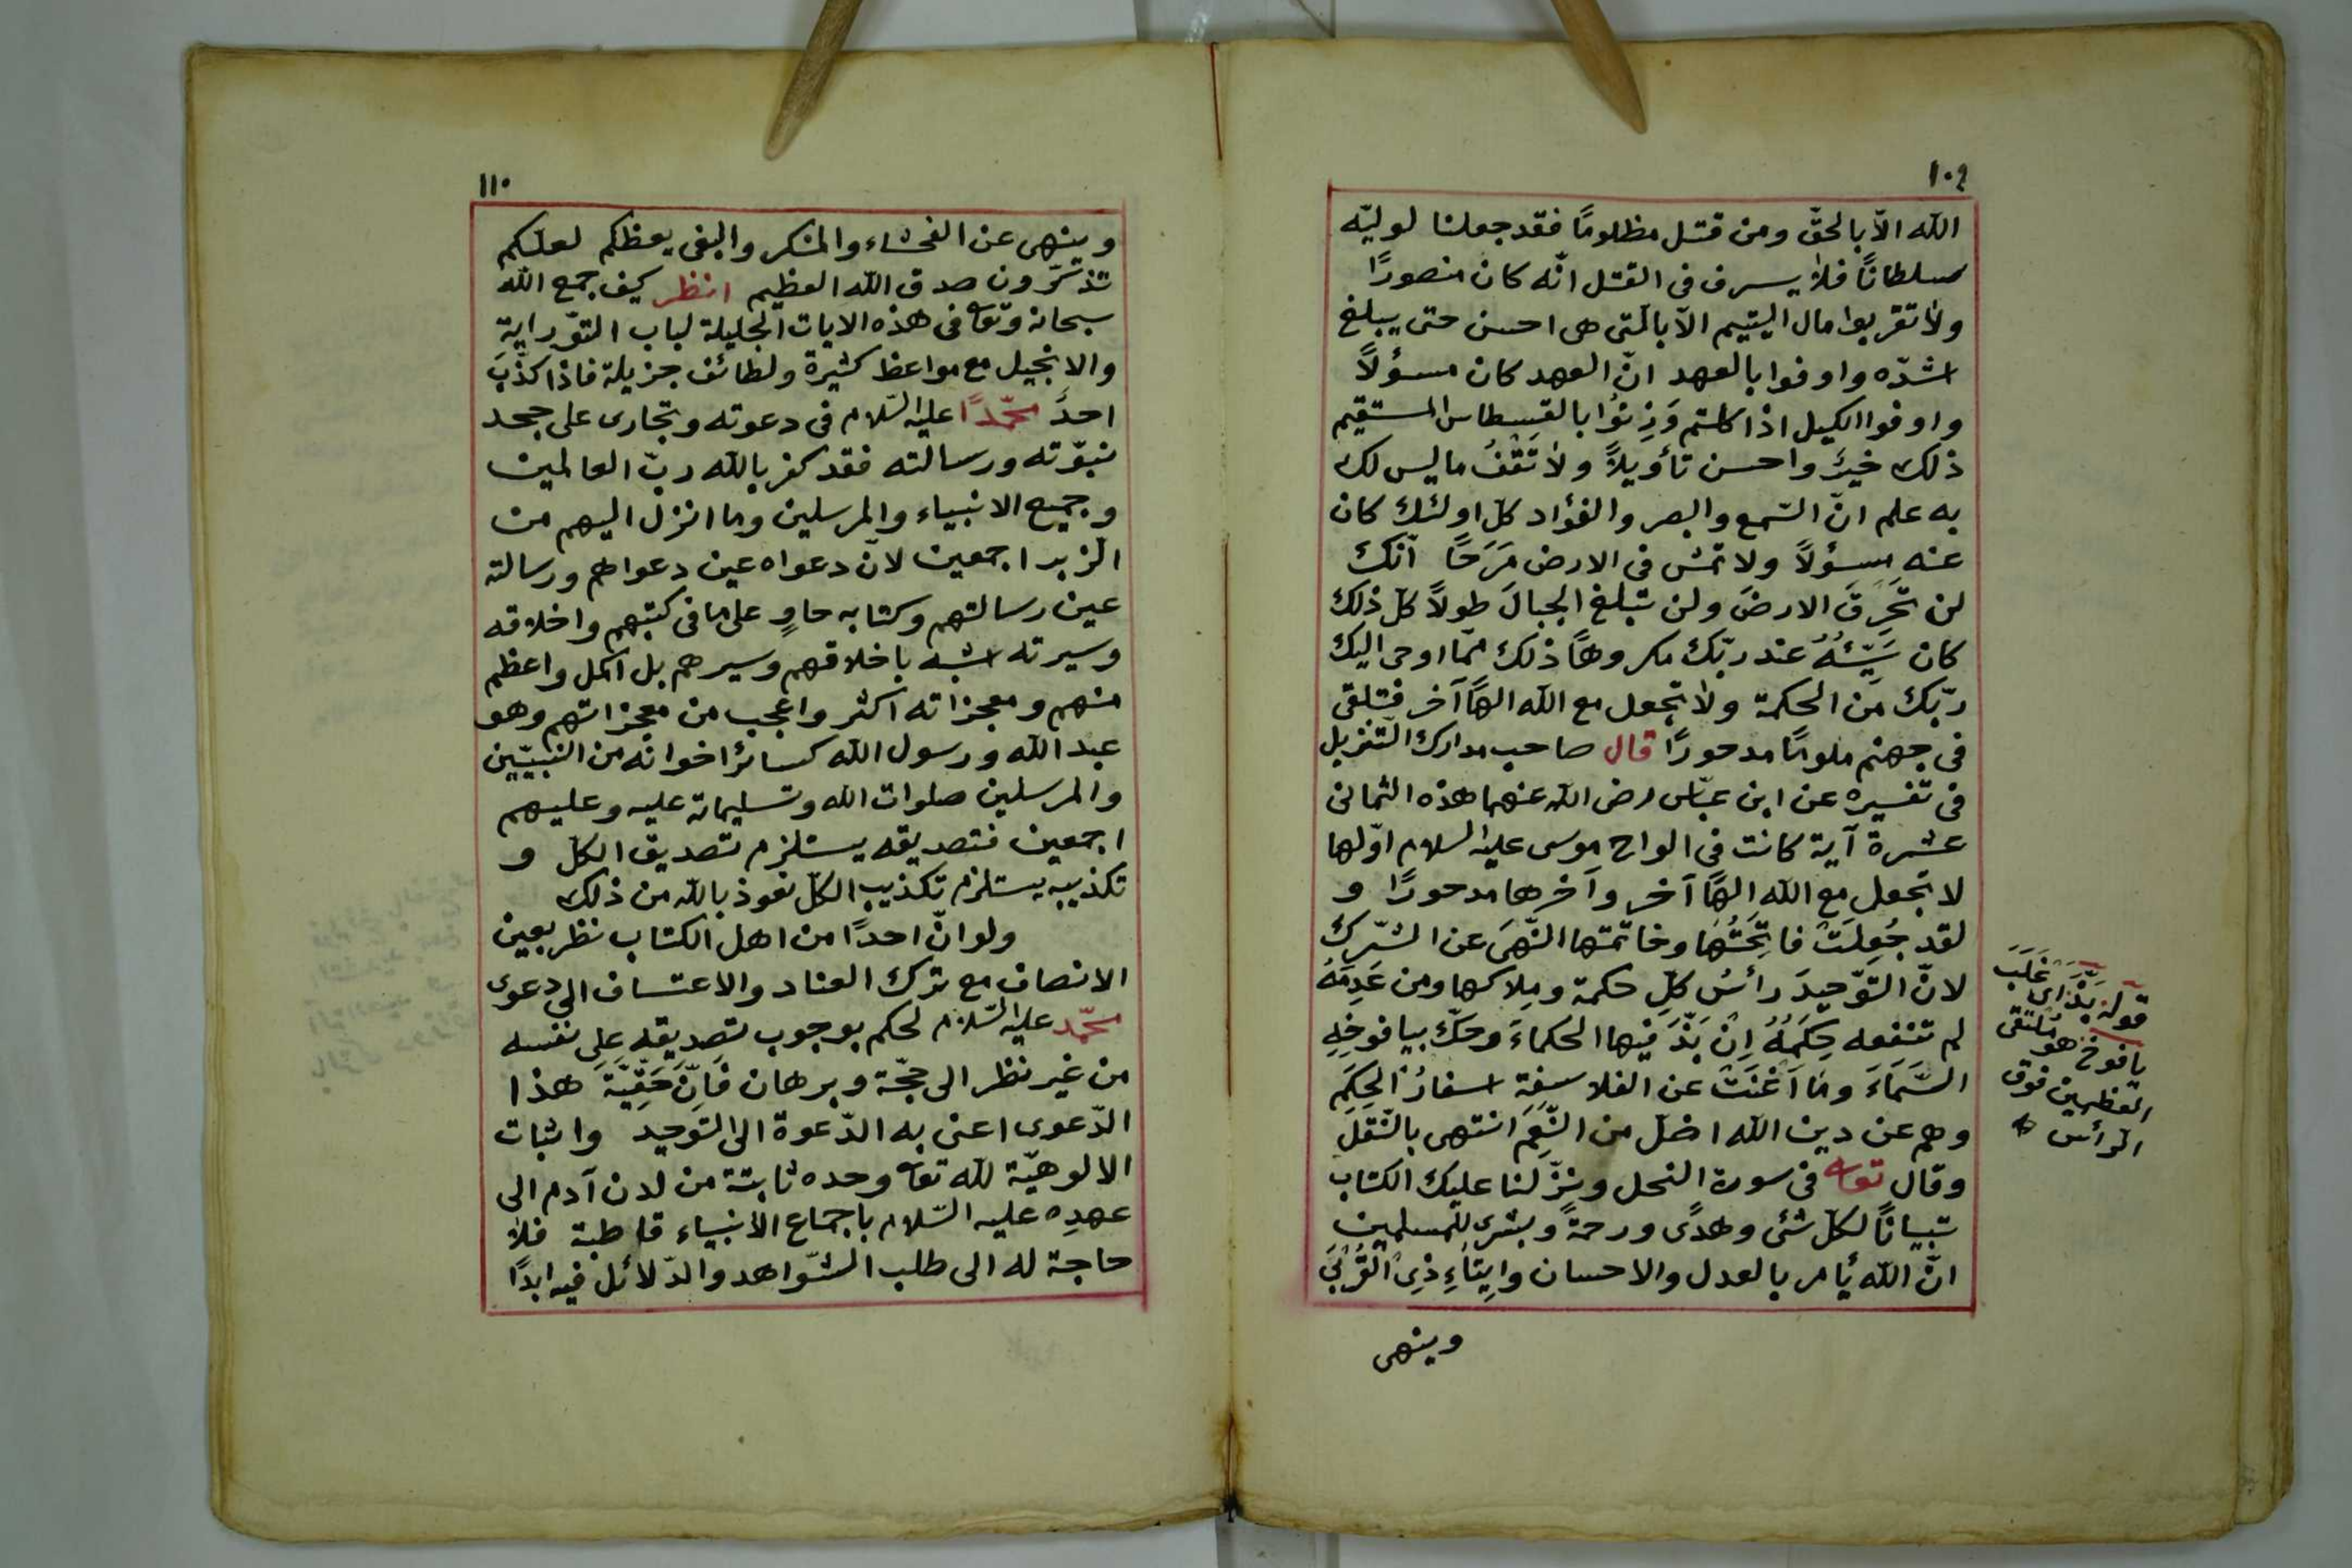 ١٠٩
الله الّا بالحقّ ومن قتل مظلومًا فقد جعلنا لوليّه
سلطانًا فلا يسرف فى القتل انّه كان منصورًا
ولا تقربوا مال اليتيم الّا بالّتى هى احسن حتى يبلغ
اشدّه واوفوا بالعهد انّ العهد كان مسؤلًا
واوفوا الكيل اذا كلتم وَزِنُوا بالقسطاس المستقيم
ذلك خيرٌ واحسن تأويلًا ولا تَقْفُ ما ليس لك
به علم انّ السّمع والبصر والفؤاد كلّ اولئك كان
عنه مسؤلًا ولا تمش فى الارض مَرَحًا انّكَ
لن تخرِقَ الارضَ ولن تبلغ الجبالَ طولًا كلّ ذلك
كان سَيِّئُهُ عند ربّك مكروهًا ذلك ممّا اوحى اليك
ربّك من الحكمة ولا تجعل مع الله الهًا آخر فتلقى
فى جهنم ملومًا مدحورًا قال صاحب مدارك التّنزيل
فى تفسيره عن ابن عبّاس رضى الله عنهما هذه الثمانى
عشرة آية كانت فى الواح موسى عليه السلام اوّلها
لا تجعل مع الله الهًا آخر وآخرها مدحورًا و
لقد جُعِلَتْ فاتِحَتُهَا وخاتمتها النّهىَ عن الشّرك
لانّ التّوحيدَ رأسُ كلّ حكمة ومِلاكها ومن عَدِمَهُ
لم تنفعه حِكَمُهُ اِنْ بَذَّ فيها الحكماءَ وحكّ بيافوخِهِ
السَّمَاءَ وما اَغْنَتْ عن الفلاسفة اسفارُ الحِكَمِ
وهم عن دين الله اضلّ من النَّعَمِ انتهى بالنّقل
وقال تعالى فى سورة النحل ونزّلنا عليك الكتاب
تبيانًا لكلّ شئ وهدًى ورحمةً وبشرى للمسلمين
انّ الله يأمر بالعدل والاحسان وايتاءِ ذِى القُرْبَى
وينهى
قوله بَذَّ اى غَلَبَ
يافوخ هو مُلتقى
العظمين فوق
الرأس
١١٠
وينهى عن الفحشاء والمنكر والبغى يعظكم لعلّكم
تذكّرون صدق الله العظيم انظر كيف جمع الله
سبحانه وتعالى فى هذه الايات الجليلة لباب التّوراية
والانجيل مع مواعظ كثيرة ولطائف جزيلة فاذا كذّبَ
احدٌ محمّدًا عليه السّلام فى دعوته وتجارى على جحد
نبوّته ورسالته فقد كفر بالله ربّ العالمين
وجميع الانبياء والمرسلين وما انزل اليهم من
الزّبر اجمعين لانّ دعواه عين دعواهم ورسالته
عين رسالتهم وكتابه حاوٍ على ما فى كتبهم واخلاقه
وسيرته اشبه باخلاقهم وسيرهم بل اكمل واعظم
منهم ومعجزاته اكثر واعجب من معجزاتهم وهو
عبد الله ورسول الله كسائر اخوانه من النّبيّين
والمرسلين صلوات الله وتسليماته عليه وعليهم
اجمعين فتصديقه يستلزم تصديق الكلّ و
تكذيبه يستلزم تكذيب الكلّ نعوذ بالله من ذلك
ولو انّ احدًا من اهل الكتاب نظر بعين
الانصاف مع ترك العناد والاعتساف الى دعوى
محمّد عليه السّلام لحكم بوجوب تصديقه على نفسه
من غير نظر الى حجّة وبرهان فَاِنَّ حَقِّيَّةَ هذا
الدّعوى اعنى به الدّعوة الى التّوحيد واثبات
الالوهيّة لله تعالى وحده ثابتة من لدن آدم الى
عهدِه عليه السّلام باجماع الانبياء قاطبة فلا
حاجة له الى طلب الشّواهد والدّلائل فيه ابدًا